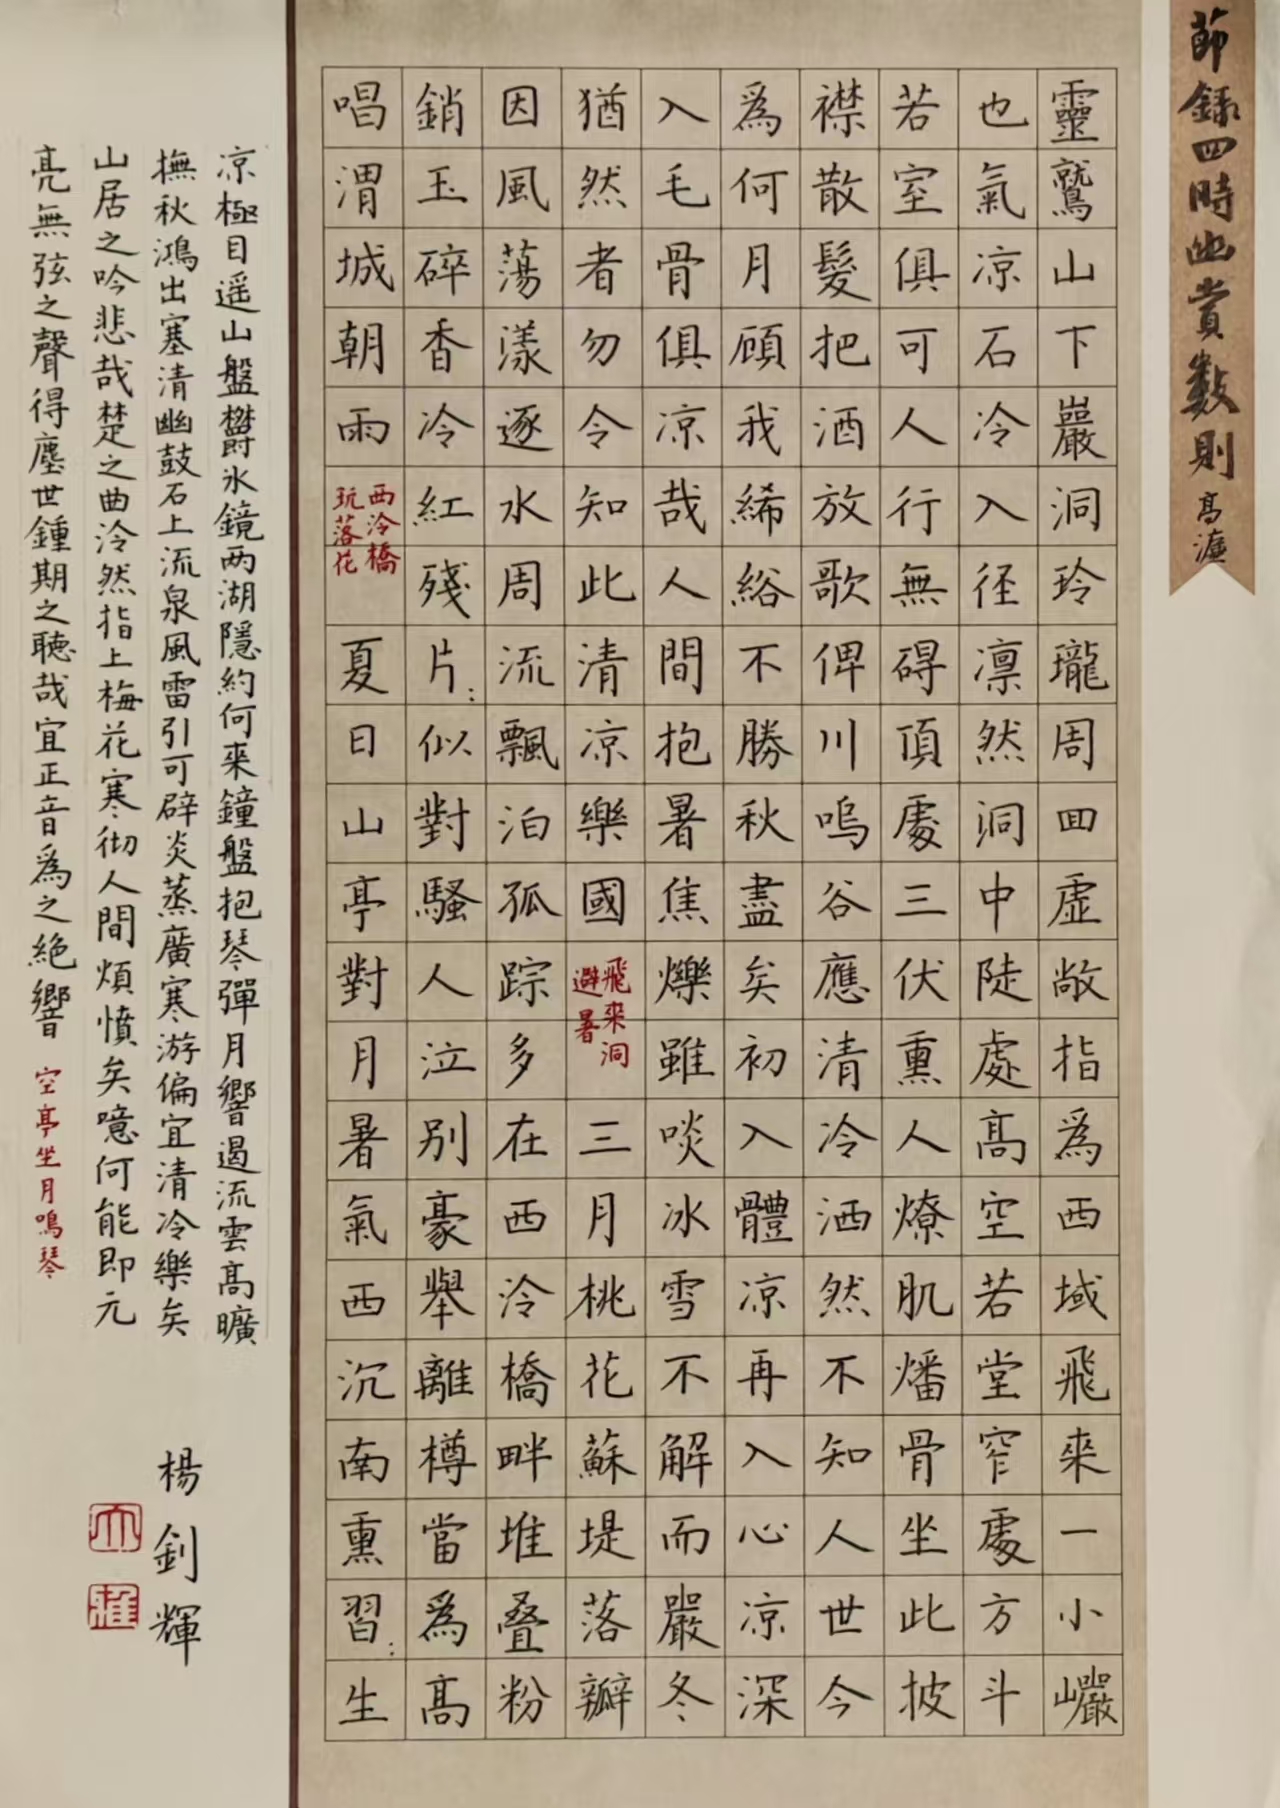 節録四時幽賞數則 高濂
靈鷲山下巖洞玲瓏周回虛敞指爲西域飛來一小巗
也氣凉石冷入径凛然洞中陡處髙空若堂窄處方斗
若室俱可人行無碍頂處三伏熏人燎肌燔骨坐此披
襟散髮把酒放歌俾川鳴谷應清冷洒然不知人世今
爲何月顧我絺綌不勝秋盡矣初入體凉再入心凉深
入毛骨俱凉哉人間抱暑焦爍雖啖冰雪不解而嚴冬
猶然者勿令知此清凉樂國 飛來洞避暑 三月桃花蘇堤落瓣
因風蕩漾逐水周流飄泊孤踪多在西泠橋畔堆叠粉
銷玉碎香冷紅殘片〻似對騷人泣别豪舉離樽當爲髙
唱渭城朝雨 西泠橋玩落花 夏日山亭對月暑氣西沉南熏習〻生
凉極目遥山盤欝氷鏡两湖隱約何來鐘盤抱琴彈月響遏流雲髙曠
撫秋鴻出塞清幽鼓石上流泉風雷引可辟炎蒸廣寒游偏宜清冷樂矣
山居之吟悲哉楚之曲泠然指上梅花寒彻人間煩憤矣噫何能即元
亮無弦之聲得塵世鍾期之聴哉宜正音爲之絶響 空亭坐月鳴琴
楊釗輝